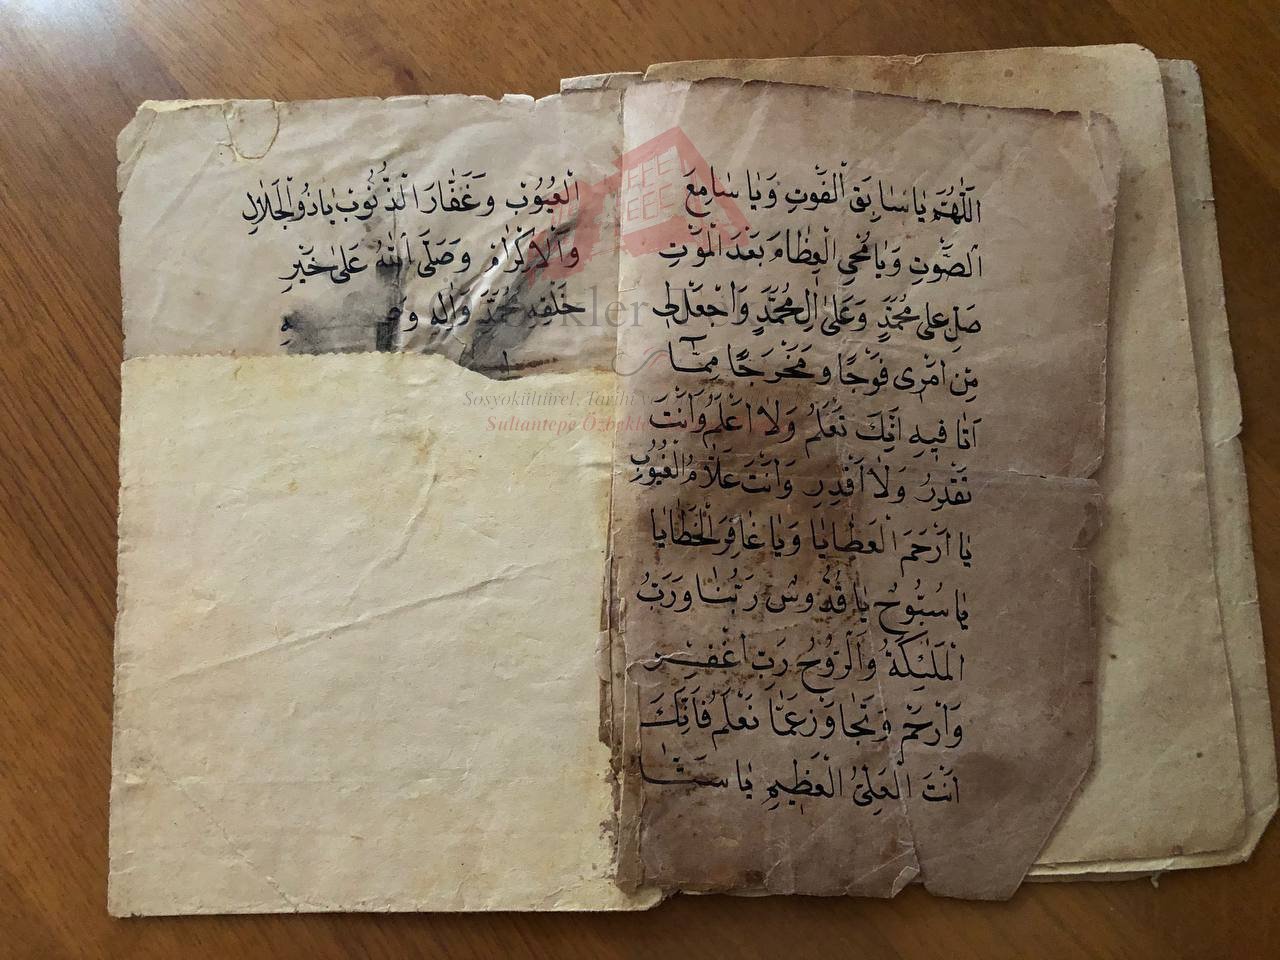 اَللّٰهُمَّ يَا سَابِقَ الْفَوْتِ وَيَا سَامِعَ
الصَّوْتِ وَيَا مُحْيِ الْعِظَامَ بَعْدَ الْمَوْتِ
صَلِّ عَلٰى مُحَمَّدٍ وَعَلٰى اٰلِ مُحَمَّدٍ وَاجْعَلْ لِى
مِنْ اَمْرِى فَوَجًا وَمَخْرَجًا مِمَّا
اَنَا فِيهِ اِنَّكَ تَعْلَمُ وَلَا اَعْلَمُ وَاَنْتَ
تَقْدِرُ وَلَا اَقْدِرِ وَاَنْتَ عَلَّامُ الْغُيُوبِ
يَا اَرْحَمَ الْعَطَايَا وَيَا غَافِرَ الْخَطَايَا
يَا سُبُّوحُ يَا قُدُّوسُ رَبُّنَا وَرَبُّ
الْمَلٰئِكَةِ وَالرُّوحُ رَبِّ اغْفِرْ
وَارْحَمْ وَتَجَاوَزْ عَمَّا تَعْلَمُ فَاِنَّكَ
اَنْتَ الْعَلِىُّ الْعَظِيمِ يَا سَتَّارَ
الْعُيُوبْ وَغَفَّارَ الذُّنُوبْ يَا ذُو الْجَلَالِ
وَالْاِكْرَامْ وَصَلَّى اللّٰهُ عَلٰى خَيْرِ
خَلْقِهِ مُحَمَّدٍ وَاٰلِهِ
Sosyokültürel, Tarihi ve
Sultantepe Özbekler